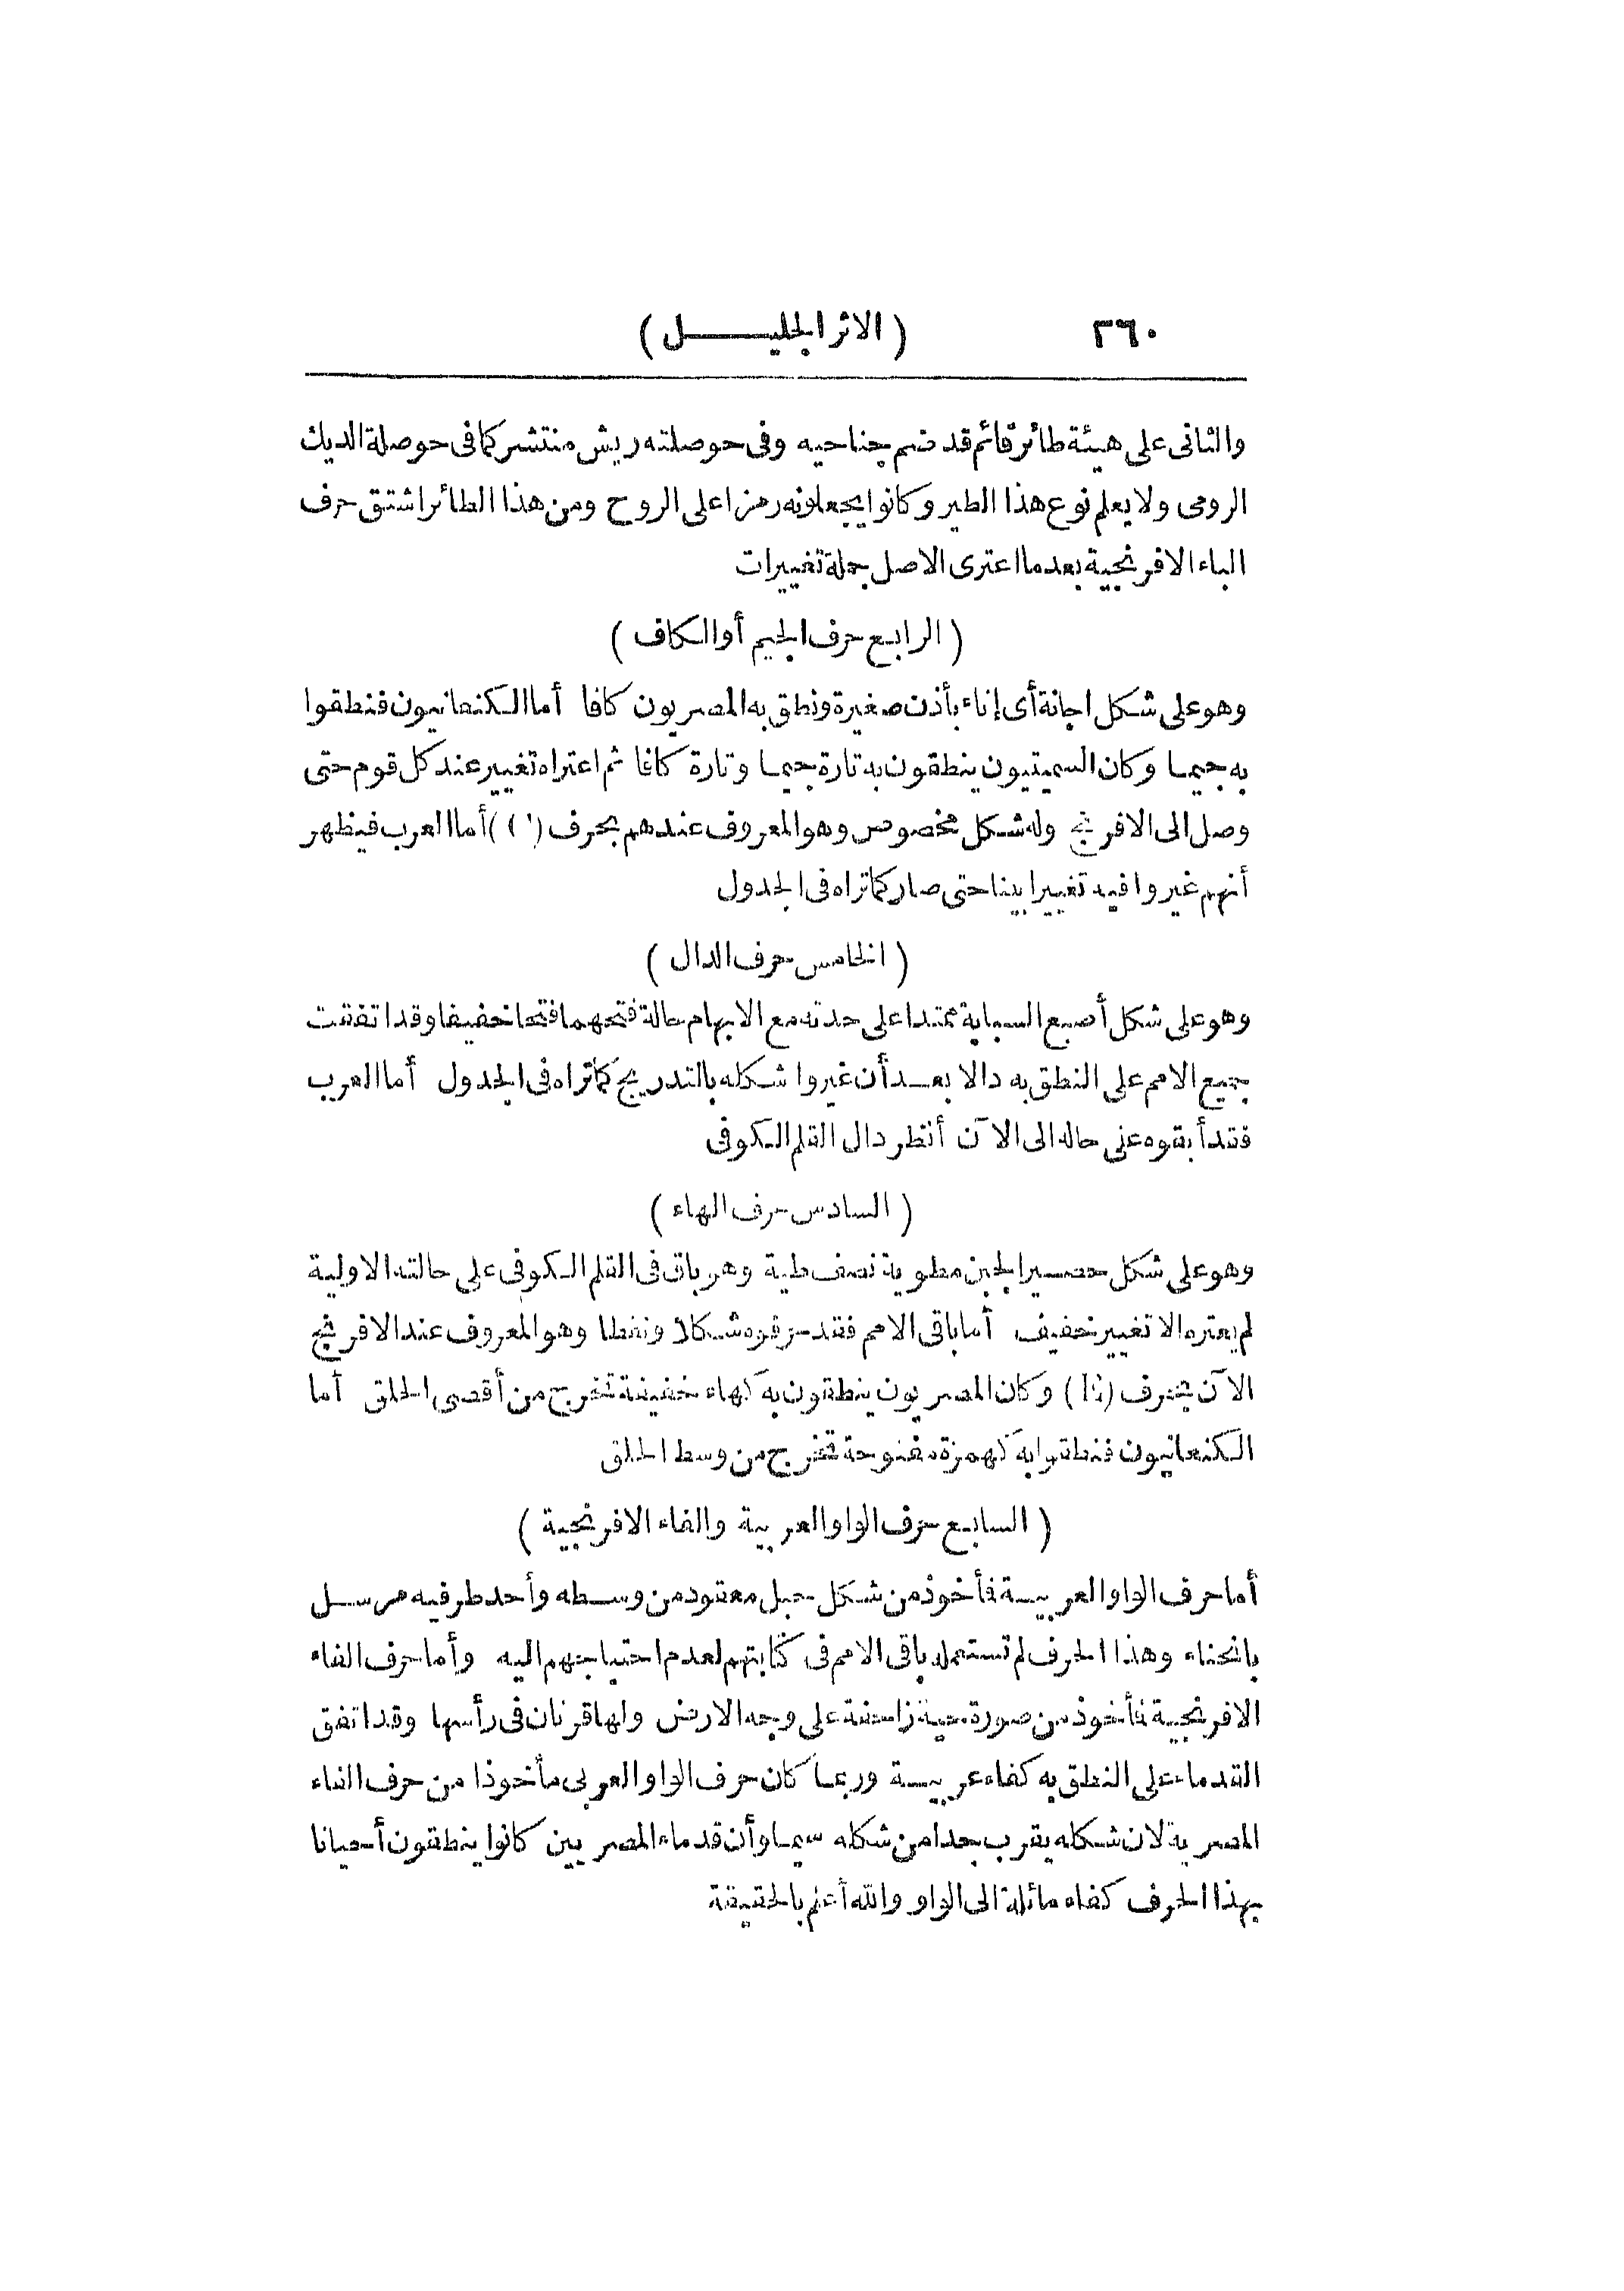 ٢٦٠ (الاثر الجليل)
والثانى على هيئة طائر قائم قد ضم جناحيه وفى حوصلته ريش منتشر كما فى حوصلة الديك
الرومى ولا يعلم نوع هذا الطير وكانوا يجعلونه رمزا على الروح ومن هذا الطائر اشتق حرف
الباء الافرنجية بعدما اعترى الاصل جملة تغييرات
(الرابع حرف الجيم أو الكاف)
وهو على شكل اجانة أى إناء بأذن صغيرة ونطق به المصريون كافا أما الكنعانيون فنطقوا
به جيما وكان السميتيون ينطقون به تارة جيما وتارة كافا ثم اعتراه تغيير عند كل قوم حتى
وصل الى الافرنج وله شكل مخصوص وهو المعروف عندهم بحرف ( ) أما العرب فيظهر
أنهم غيروا فيه تغييرا بينا حتى صار كما تراه فى الجدول
(الخامس حرف الدال)
وهو على شكل أصبع السبابة ممتدا على حدته مع الابهام حالة فتحهما فتحا خفيفا وقد اتفقت
جميع الامم على النطق به دالا بعد أن غيروا شكله بالتدريج كما تراه فى الجدول أما العرب
فقد أبقوه على حاله الى الآن أنظر دال القلم الكوفى
(السادس حرف الهاء)
وهو على شكل حصير الجبن مطوية نصف طية وهو باق فى القلم الكوفى على حالته الاولية
لم يعتره الا تغيير خفيف أما باقى الامم فقد حرفوه شكلا ونطقا وهو المعروف عند الافرنج
الآن بحرف ( ) وكان المصريون ينطقون به كهاء خفيفة تخرج من أقصى الحلق أما
الكنعانيون فنطقوا به كهمزة مفتوحة تخرج من وسط الحلق
(السابع حرف الواو العربية والفاء الافرنجية)
أما حرف الواو العربية فأخوذ من شكل حبل معقود من وسطه وأحد طرفيه مرسل
بانحناء وهذا الحرف لم تستعمله باقى الامم فى كتابتهم لعدم احتياجهم اليه وأما حرف الفاء
الافرنجية فأخوذ من صورة حية زاحفة على وجه الارض ولها قرنان فى رأسها وقد اتفق
القدماء على النطق به كفاء عربية وربما كان حرف الواو العربى مأخوذا من حرف الفاء
المصرية لان شكله يقرب جدا من شكله سيما وأن قدماء المصريين كانوا ينطقون أحيانا
بهذا الحرف كفاء مائلة الى الواو والله أعلم بالحقيقة